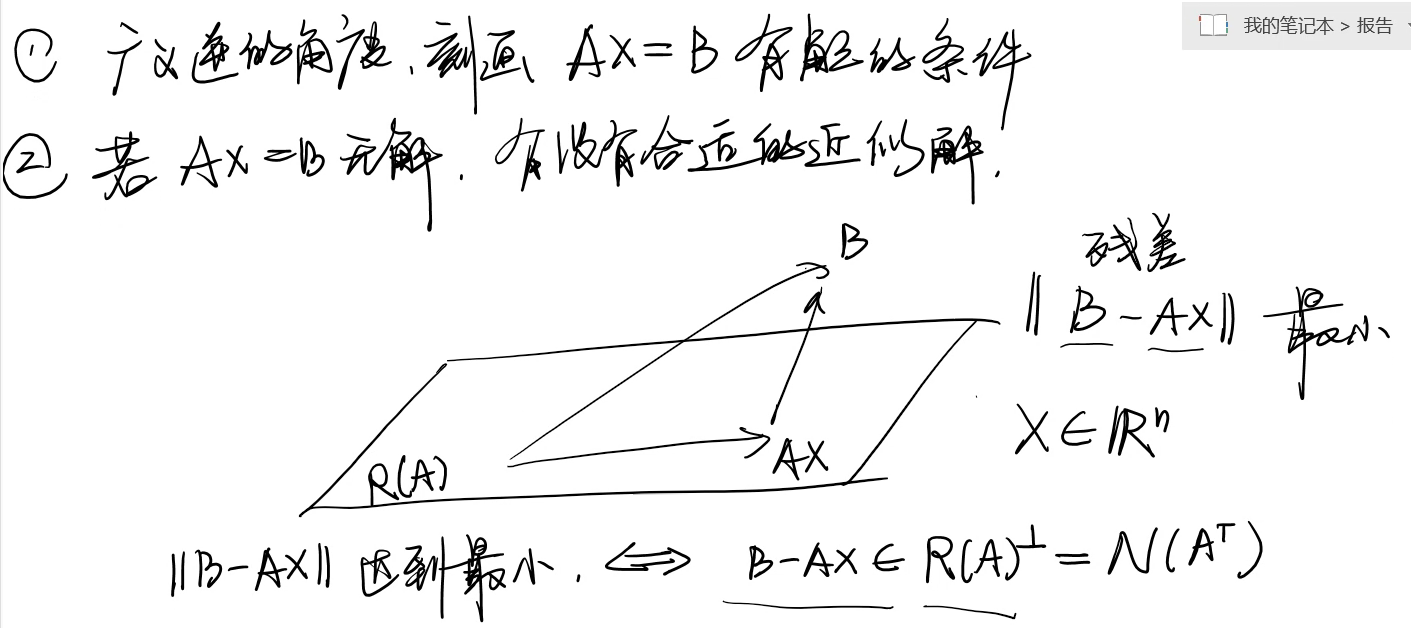 我的笔记本 > 报告
① 广义逆的角度、刻画 AX = B 有解的条件
② 若 AX = B 无解. 有没有合适的近似解.
B
残差
‖ B - AX ‖ 最小
X ∈ ℝⁿ
AX
R(A)
‖B - AX‖ 达到最小. ⟺ B - AX ∈ R(A)^⊥ = N(Aᵀ)